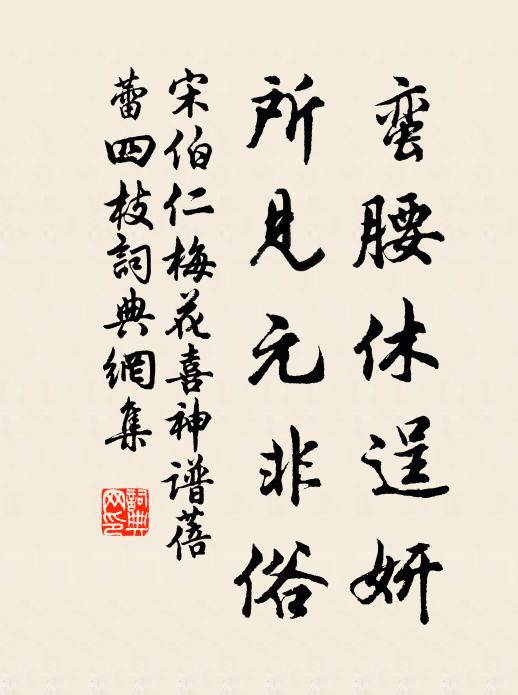 蛮腰休逞妍
所见元非俗
宋伯仁梅花喜神谱蓓
蕾四枝詞典網集
詞典
网印